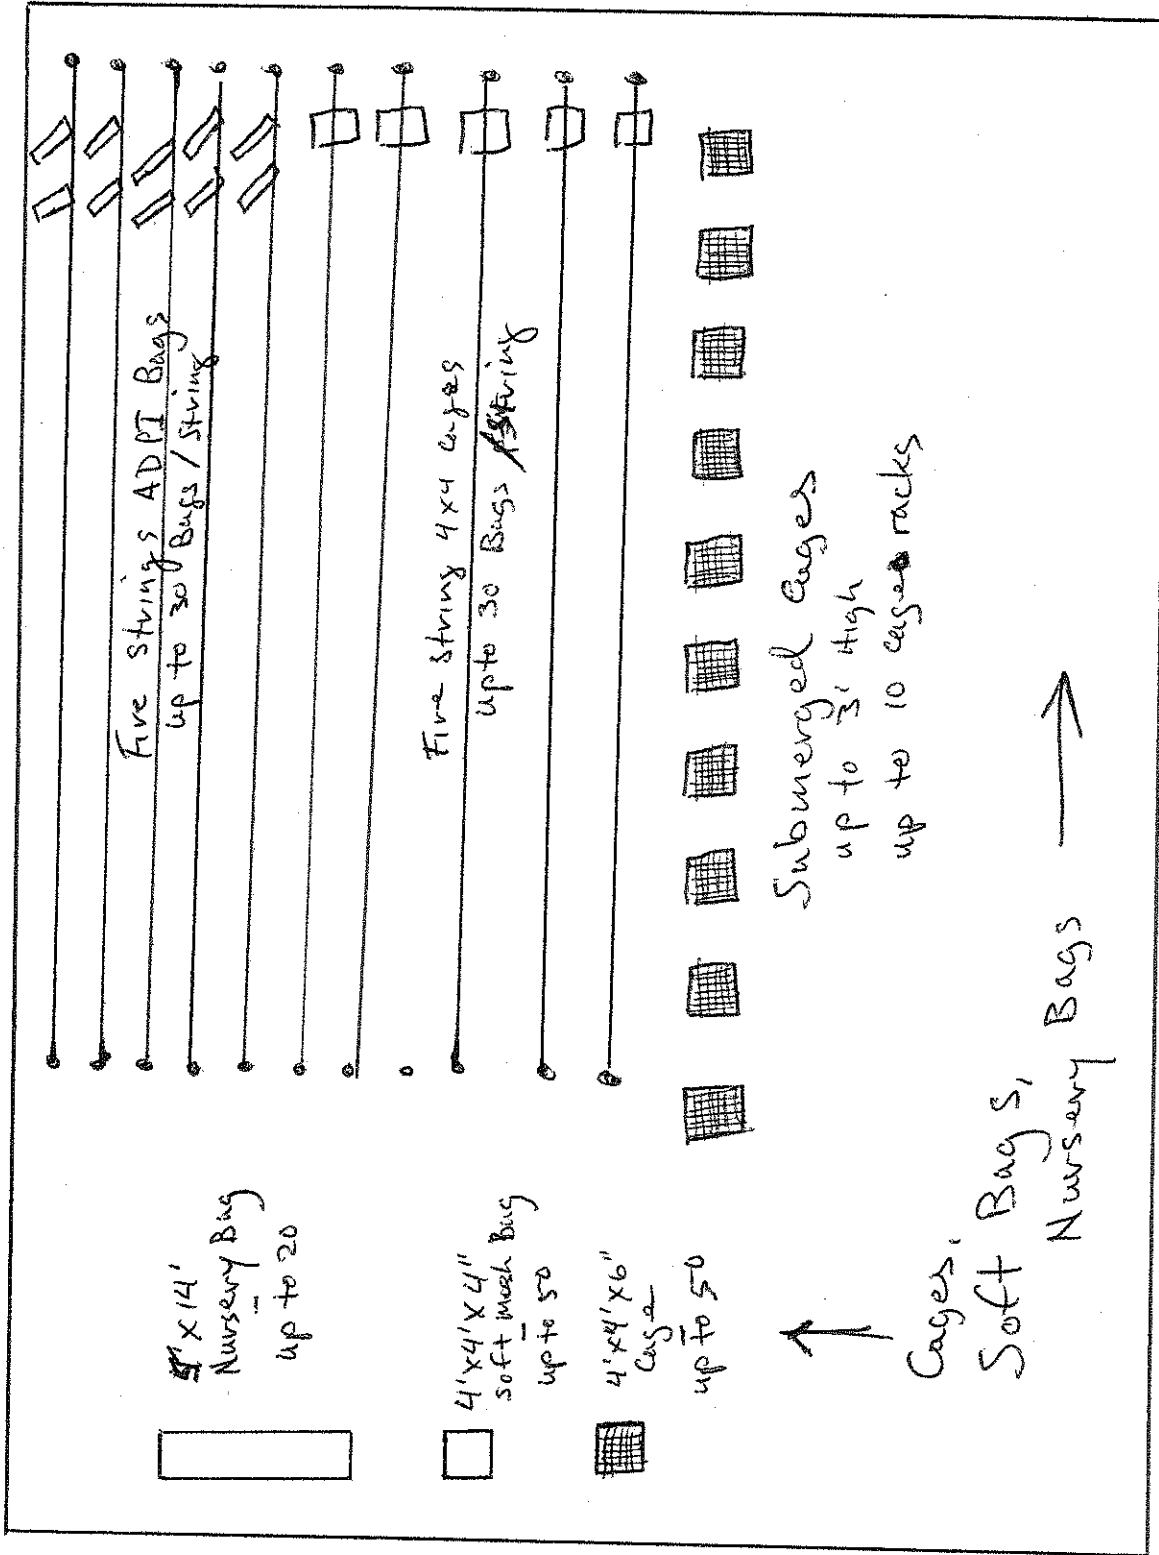 Five Strings ADPI Bags
up to 30 Bags / String
Five String 4x4 cages
upto 30 Bags /String
Submerged Cages
up to 3' High
up to 10 cage racks
x 14'
Nursery Bag
up to 20
4'x4'x4"
soft mesh Bag
up to 50
4'x4'x6"
Cage
up to 50
Cages,
Soft Bags,
Nursery Bags